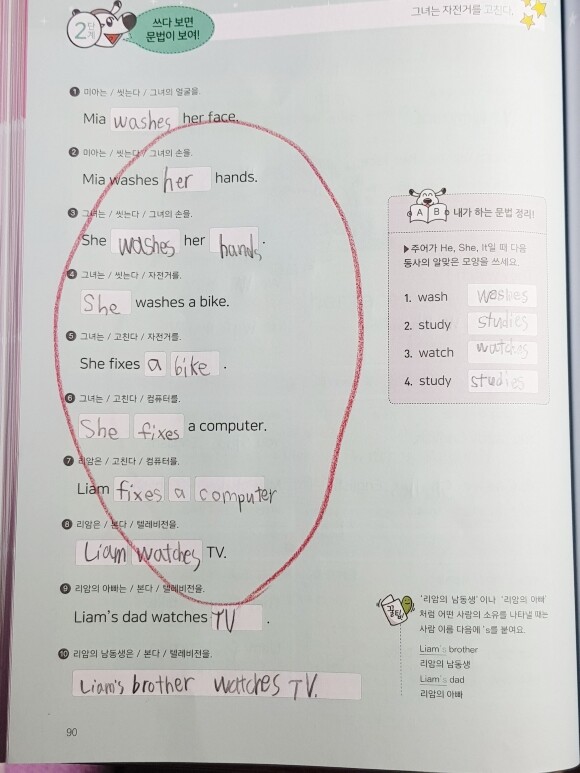 그녀는 자전거를 고친다.
2단계
쓰다 보면
문법이 보여!
1 미아는 / 씻는다 / 그녀의 얼굴을.
Mia washes her face.
2 미아는 / 씻는다 / 그녀의 손을.
Mia washes her hands.
3 그녀는 / 씻는다 / 그녀의 손을.
She washes her hands.
4 그녀는 / 씻는다 / 자전거를.
She washes a bike.
5 그녀는 / 고친다 / 자전거를.
She fixes a bike.
6 그녀는 / 고친다 / 컴퓨터를.
She fixes a computer.
7 리암은 / 고친다 / 컴퓨터를.
Liam fixes a computer
8 리암은 / 본다 / 텔레비전을.
Liam watches TV.
9 리암의 아빠는 / 본다 / 텔레비전을.
Liam's dad watches TV.
10 리암의 남동생은 / 본다 / 텔레비전을.
Liam's brother watches TV.
A B 내가 하는 문법 정리!
▶주어가 He, She, It일 때 다음
동사의 알맞은 모양을 쓰세요.
1. wash washes
2. study studies
3. watch watches
4. study studies
꿀팁
'리암의 남동생'이나 '리암의 아빠'
처럼 어떤 사람의 소유를 나타낼 때는
사람 이름 다음에 's를 붙여요.
Liam's brother
리암의 남동생
Liam's dad
리암의 아빠
90